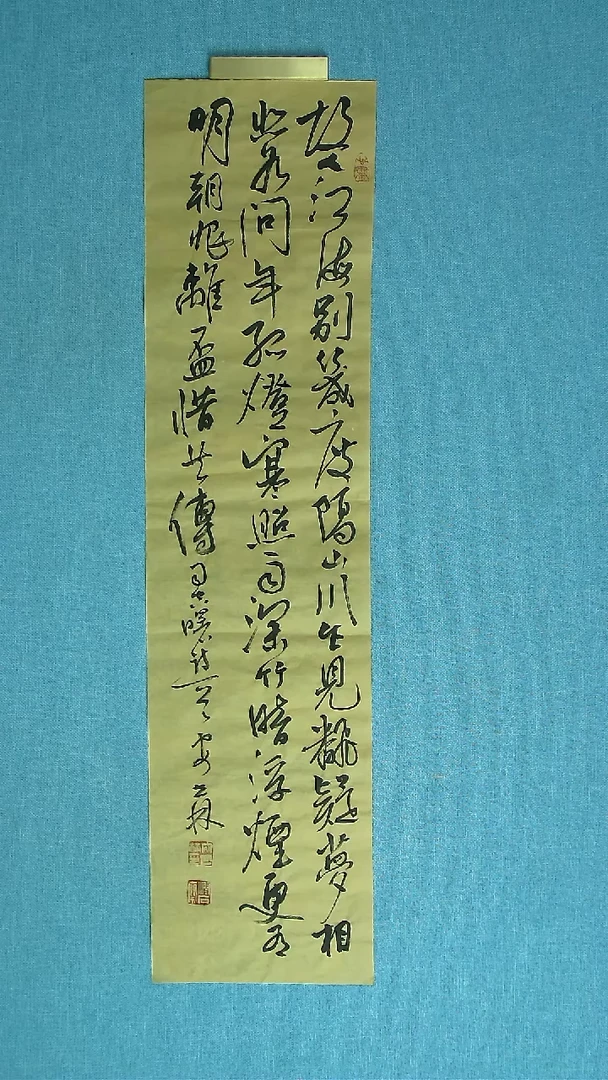 故人江海別幾度隔山川乍見翻疑夢相
悲各問年孤燈寒照雨深竹暗浮煙更有
明朝恨離盃惜共傳司空曙詩一首